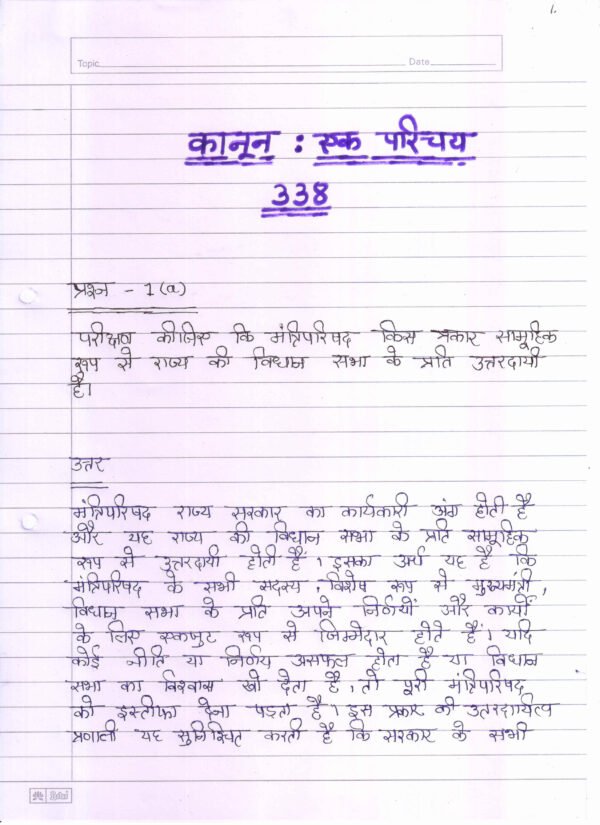 1.
Topic Date
कानून : एक परिचय
338
प्रश्न - 1(a)
परीक्षण कीजिए कि मंत्रिपरिषद किस प्रकार सामूहिक
रूप से राज्य की विधान सभा के प्रति उत्तरदायी
है।
उत्तर
मंत्रिपरिषद राज्य सरकार का कार्यकारी अंग होती है
और यह राज्य की विधान सभा के प्रति सामूहिक
रूप से उत्तरदायी होती है। इसका अर्थ यह है कि
मंत्रिपरिषद के सभी सदस्य, विशेष रूप से मुख्यमंत्री,
विधान सभा के प्रति अपने निर्णयों और कार्यों
के लिए एकजुट रूप से जिम्मेदार होते हैं। यदि
कोई नीति या निर्णय असफल होता है या विधान
सभा का विश्वास खो देता है, तो पूरी मंत्रिपरिषद
को इस्तीफा देना पड़ता है। इस प्रकार की उत्तरदायित्व
प्रणाली यह सुनिश्चित करती है कि सरकार के सभी